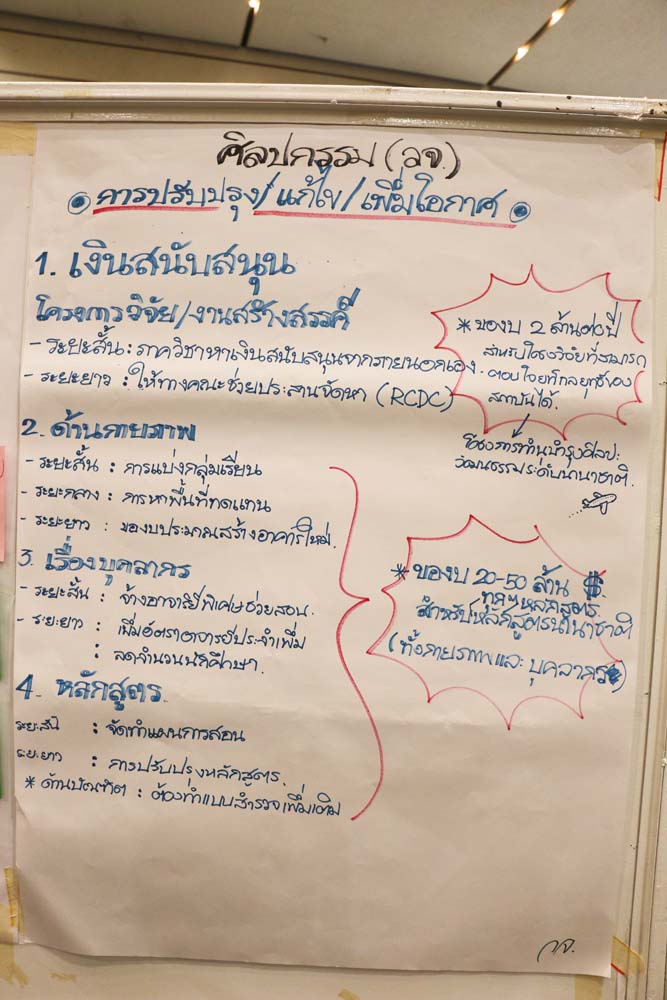 ศิลปกรรม (วจ.)
การปรับปรุง/แก้ไข/เพิ่มโอกาศ
1. เงินสนับสนุน
โครงการวิจัย/งานสร้างสรรค์
- ระยะสั้น : ภาควิชาหาเงินสนับสนุนจากภายนอกเอง.
- ระยะยาว : ให้ทางคณะช่วยประสานจัดหา (RCDC)
* ของบ 2 ล้านต่อปี
สำหรับโครงวิจัยที่สามารถ
ตอบโจยท์กลยุทธ์ของ
สถาบันได้.
โครงการทำนุบำรุงศิลปะ
วัฒนธรรมระดับนานาชาติ.
2. ด้านกายภาพ
- ระยะสั้น : การแบ่งกลุ่มเรียน
- ระยะกลาง : การหาพื้นที่ทดแทน
- ระยะยาว : ของบประมาณสร้างอาคารใหม่.
3. เรื่องบุคลากร
- ระยะสั้น : จ้างอาจารย์พิเศษช่วยสอน.
- ระยะยาว : เพิ่มอัตราอาจารย์ประจำเพิ่ม
: ลดจำนวนนักศึกษา.
* ของบ 20-50 ล้าน $.
ทุกๆหลักสูตร.
สำหรับหลักสูตรนานาชาติ
(ทั้งกายภาพและบุคลากร)
4. หลักสูตร
ระยะสั้น : จัดทำแผนการสอน
ระยะยาว : การปรับปรุงหลักสูตร.
* ด้านบัณฑิต : ต้องทำแบบสำรวจเพิ่มเติม
วจ.